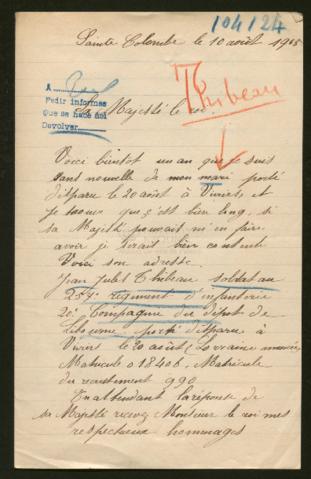 104124
Sainte Colombe le 10 août 1915
Thibeau
A
Pedir informes
Que se hace aqui
Devolver
Sa Majesté le roi.
Voici bientot un an que je suis
sans nouvelle de mon mari porté
disparu le 20 août à Viviers, et
je trouve que c'est bien long, si
sa Majesté pouvait m'en faire
avoir je serait bien contente
Voici son adresse.
Jean Jules Thibeau soldat au
257e regiment d'infanterie
20e Compagnie du dépot de
Libourne porté disparu à
Vivier le 20 août (Lorraine
Matricule 01840b, Matricule
du recrutement 990
En attendant la réponse de
sa Majesté recevez Monsieur le roi mes
respectueux hommages